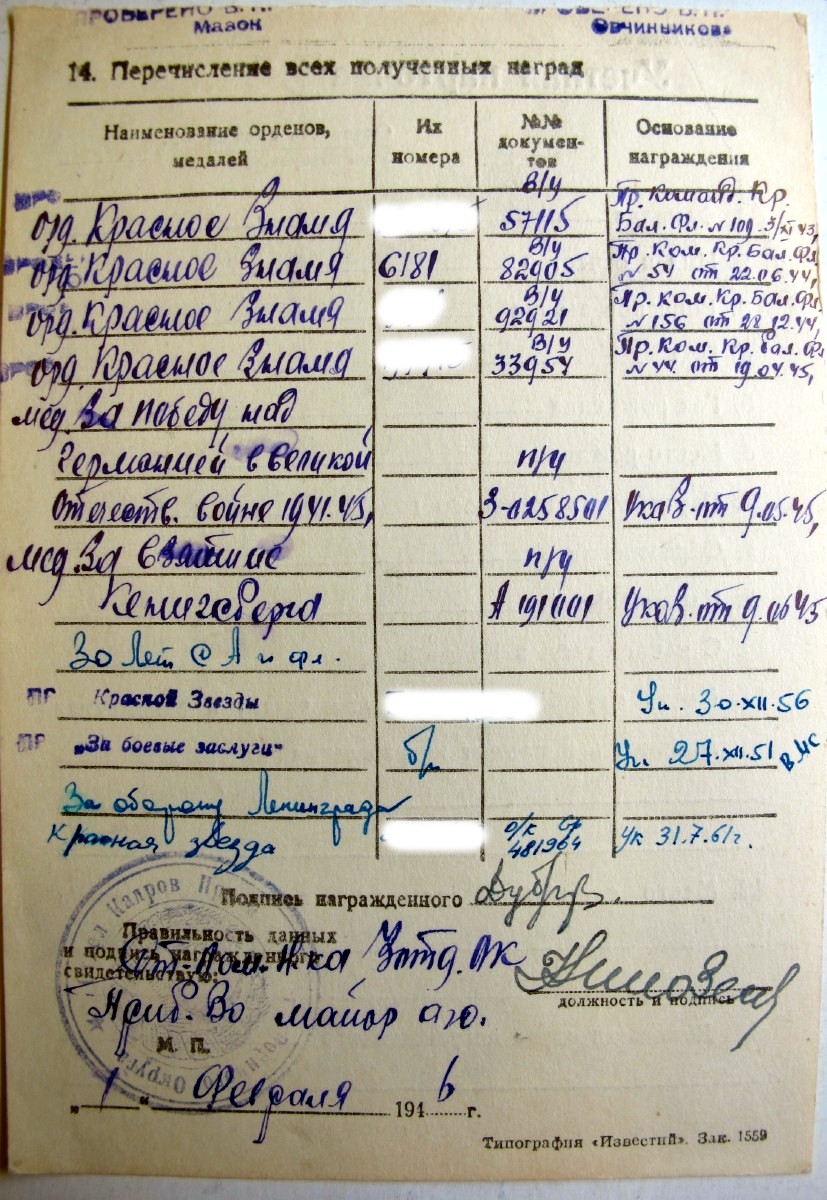 ПРОВЕРЕНО
Мазон
Овчинникова
14. Перечисление всех полученных наград
Наименование орденов, медалей
Их номера
№№ документов
Основание награждения
орд. Красное Знамя В/у 57115 Пр. Команд. Кр. Бал. Фл. № 109
орд. Красное Знамя 6181 В/у 82905 Пр. Ком. Кр. Бал. Фл. № 54 от 22.06.44,
орд. Красное Знамя В/у 92921 Пр. Ком. Кр. Бал. Фл. № 156 от 28.12.44,
орд. Красное Знамя В/у 33954 Пр. Ком. Кр. Бал. Фл. № 44 от 19.04.45,
мед. За победу над
Германией в великой п/у
Отечеств. войне 1941-45, З-0258501 Указ. от 9.05.45,
мед. За взятие п/у
Кенигсберга А 191001 Указ. от 9.06.45
30 лет С А и Фл.
ПР Красной Звезды Ук. 30.XII.56
ПР „За боевые заслуги" б/н Ук. 27.XII.51 ВМС
За оборону Ленинграда
Красная звезда о/к 481964 Ук 31.7.61г.
Подпись награжденного
Правильность данных
и подпись награжденного
свидетельствую:
Ст. Пом. Н-ка Отд. ОК
Приб. Во майор а/с.
должность и подпись
М. П.
„ 1 " Февраля 1946 г.
Типография «Известий». Зак. 1559